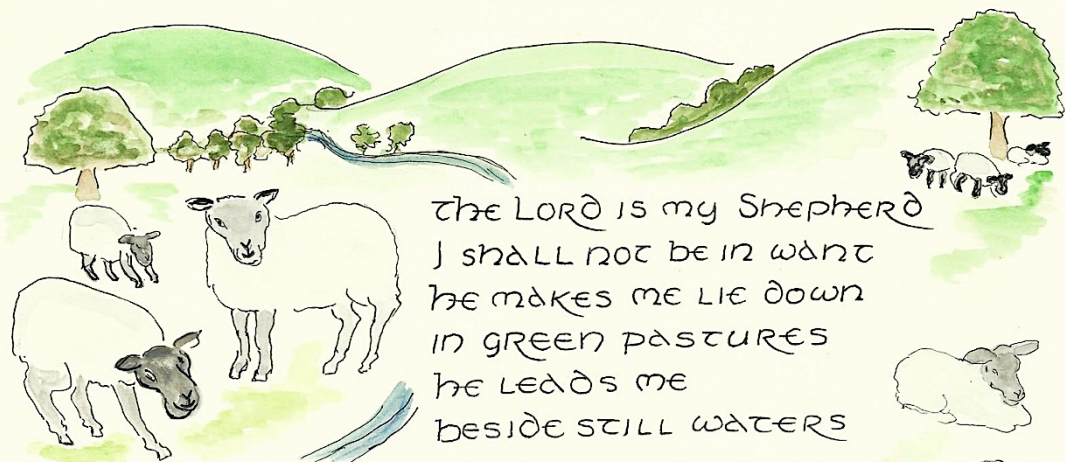 The Lord is my Shepherd
I shall not be in want
he makes me lie down
in green pastures
he leads me
beside still waters